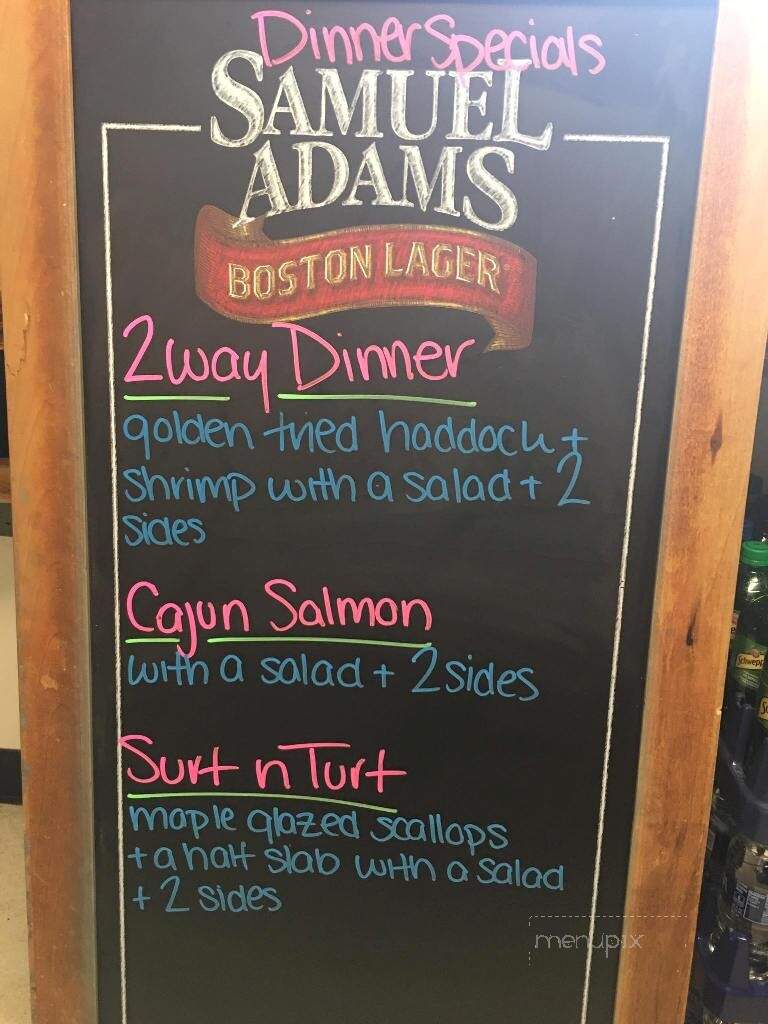 Dinner Specials
SAMUEL
ADAMS
BOSTON LAGER
2way Dinner
golden fried haddock +
shrimp with a salad + 2
sides
Cajun Salmon
with a salad + 2 sides
Surf n Turf
maple glazed scallops
+ a half slab with a salad
+ 2 sides
menupix
Schwepp